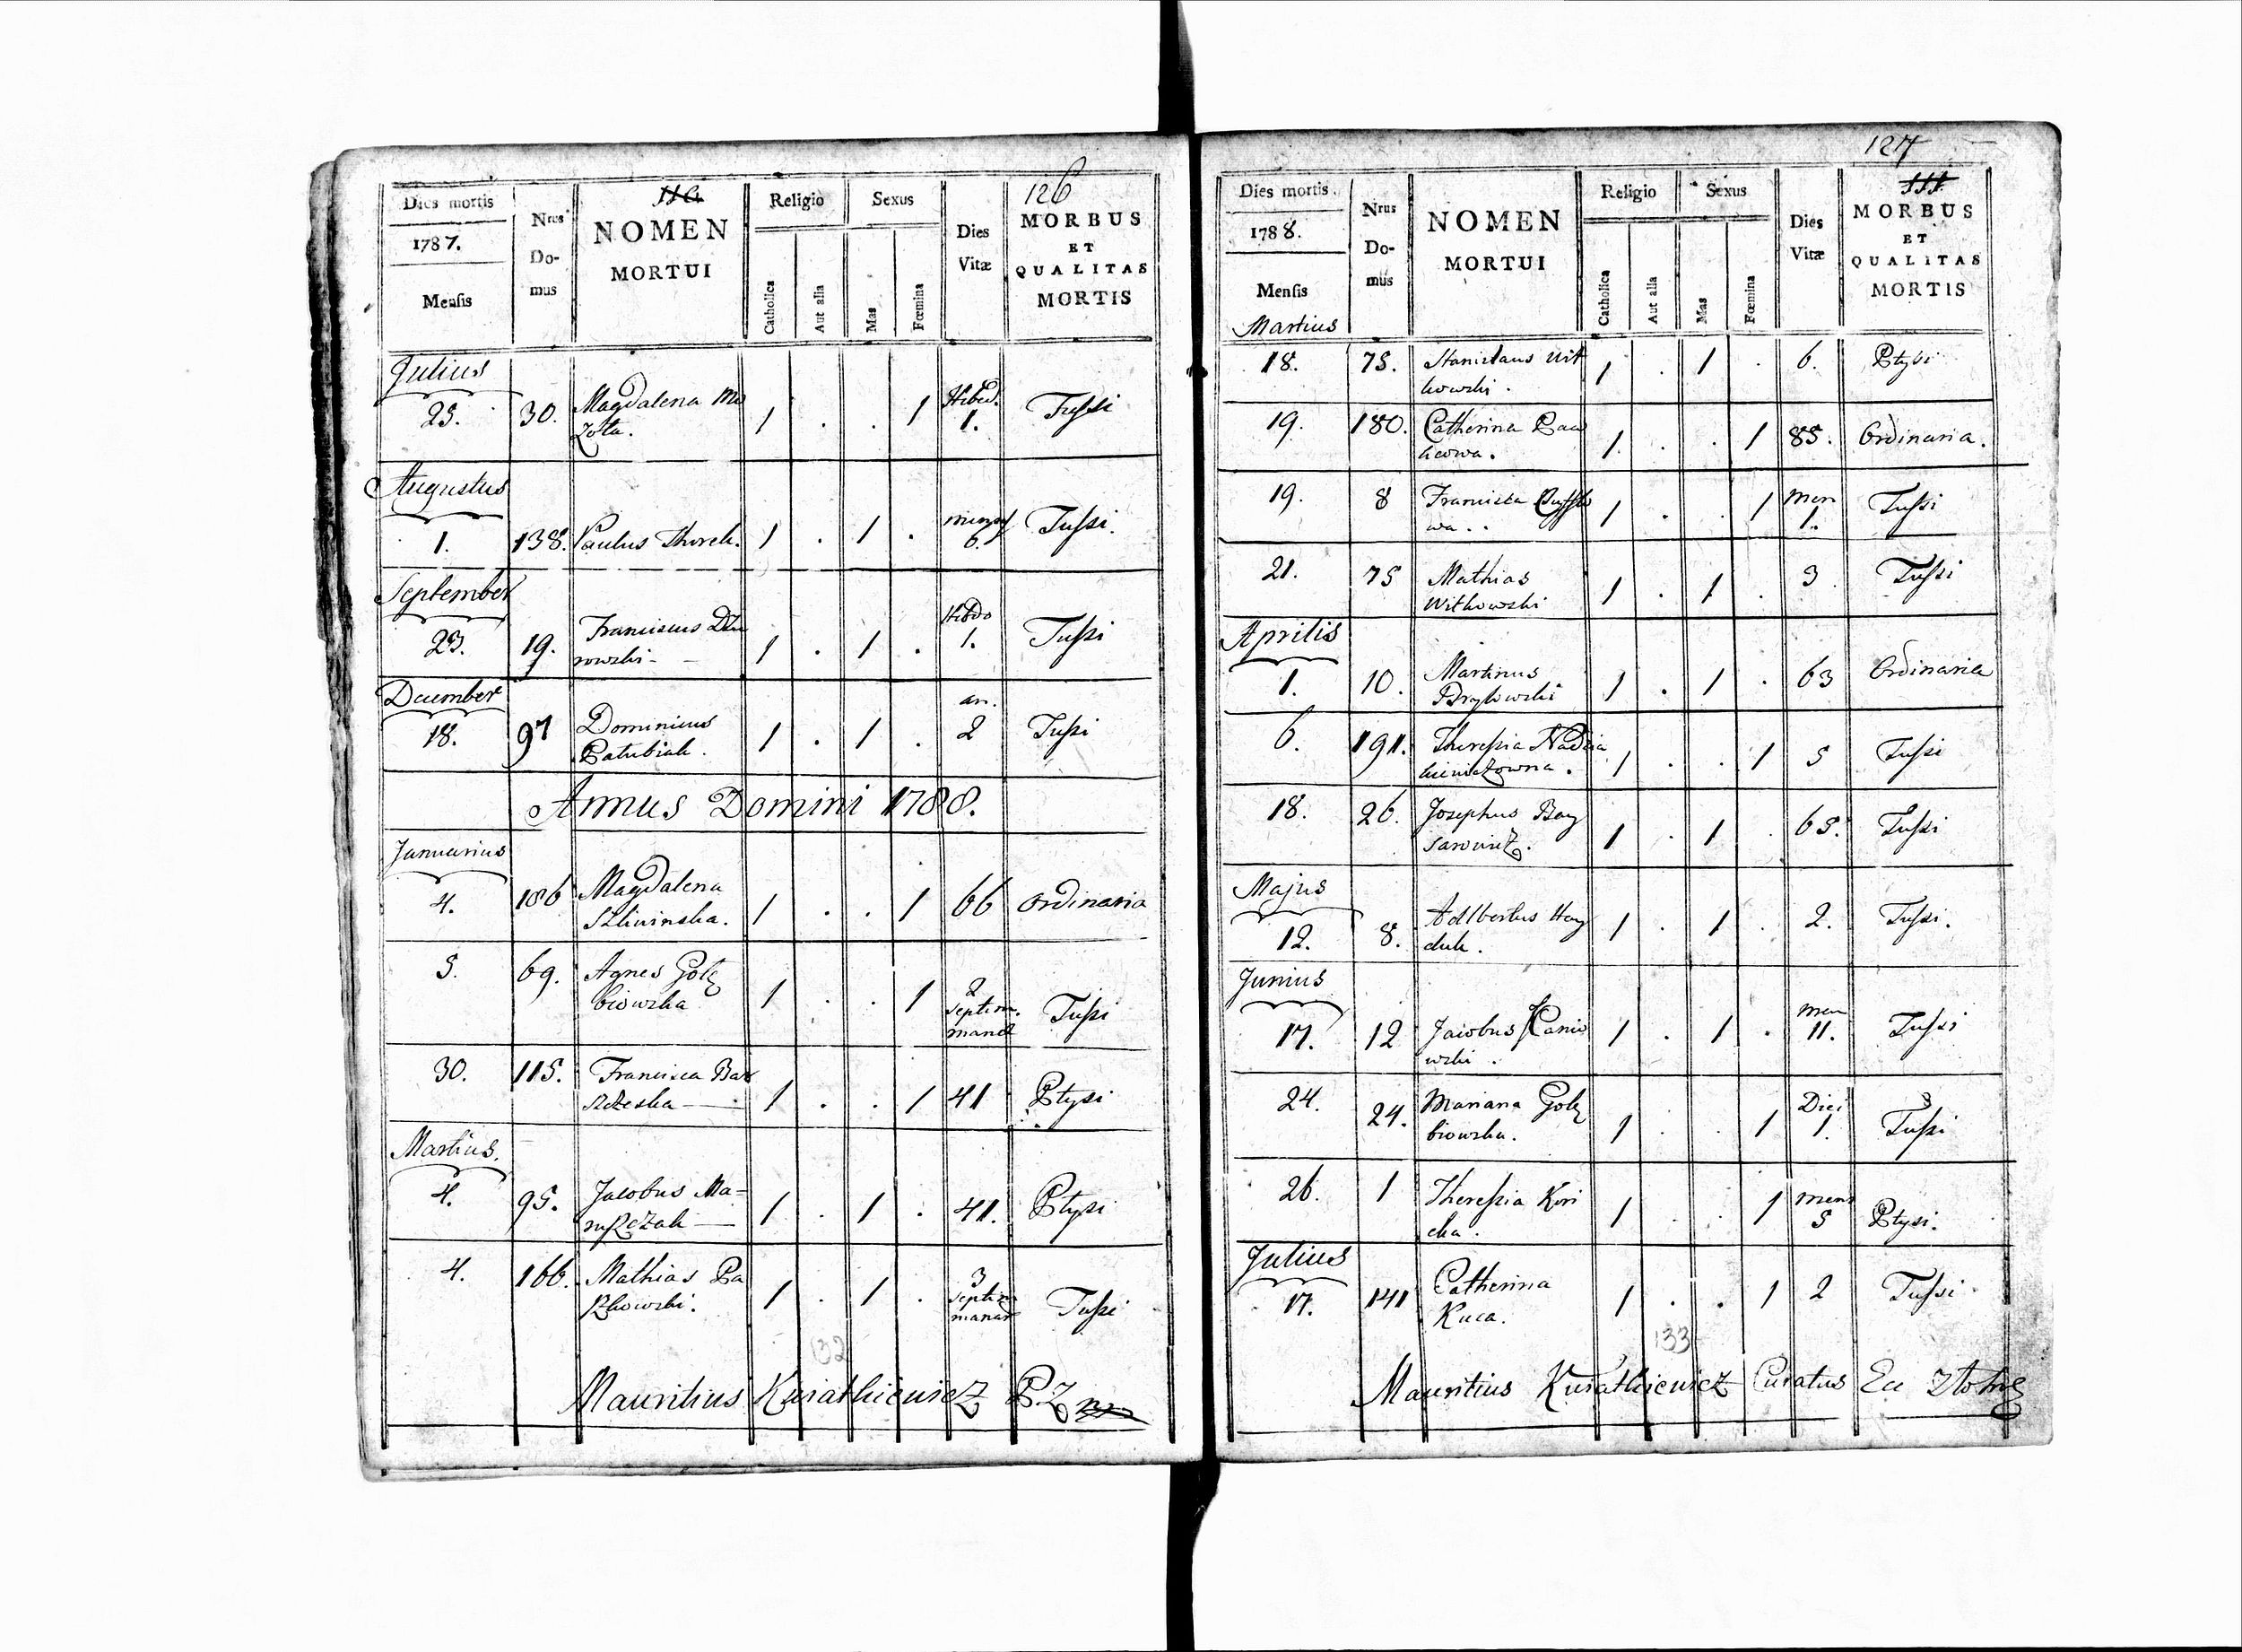 126
Dies mortis
1787.
Mensis
Nrus
Do-
mus
NOMEN
MORTUI
Religio
Catholica
Aut alia
Sexus
Mas
Fœmina
Dies
Vitæ
MORBUS
ET
QUALITAS
MORTIS
Julius
23. 30. Magdalena
1 . . 1 Hebd. 1. Tussi
Augustus
1. 138. Paulus 1 . 1 . 6. Tussi.
September
23. 19. Franciscus
rowski 1 . 1 . Hebdo 1. Tussi
December
18. 97 Dominicus
Patubiak. 1 . 1 . an. 2 Tussi
Annus Domini 1788.
Januarius
4. 186 Magdalena
Szliwinska. 1 . . 1 66 ordinaria
5. 69. Agnes Golę
biowska 1 . . 1 2 septim. Tussi
30. 115. Francisca Bar
1 . . 1 41 Ptysi
Martius.
4. 95. Jacobus Ma=
ruszczak 1 . 1 . 41. Ptysi
4. 166. Mathias Pa
szkowski. 1 . 1 . 3 septim manar Tussi
132
Mauritius Kwiatkiewicz P.Z
127
Dies mortis.
1788.
Mensis
Martius
Nrus
Do-
mus
NOMEN
MORTUI
Religio
Catholica
Aut alia
Sexus
Mas
Fœmina
Dies
Vitæ
MORBUS
ET
QUALITAS
MORTIS
18. 75. Stanislaus Wit
kowski. 1 . 1 . 6. Ptysi
19. 180. Catherina Paw
licowa. 1 . . 1 85. Ordinaria.
19. 8 Francisca
wa. 1 . . 1 Men 1. Tussi
21. 75 Mathias
Witkowski 1 . 1 . 3 Tussi
Aprilis
1. 10. Martinus
1 . 1 . 63 Ordinaria
6. 191. Theressia Nadzia
kiewiczowna. 1 . . 1 5 Tussi
18. 26. Josephus Bay
sarowicz. 1 . 1 . 65. Tussi
Majus
12. 8. Adlbertus Hay
duk. 1 . 1 . 2. Tussi.
Junius
17. 12 Jacobus Kanio
wski. 1 . 1 . men 11. Tussi
24. 24. Mariana Golę
biowska. 1 . . 1 Diei 1. Tussi
26. 1 Theressia Kori
cka. 1 . . 1 mens 5 Ptysi.
Julius
17. 141 Catherina
Kuca. 1 . . 1 2 Tussi
133
Mauritius Kwiatkiewicz Curatus